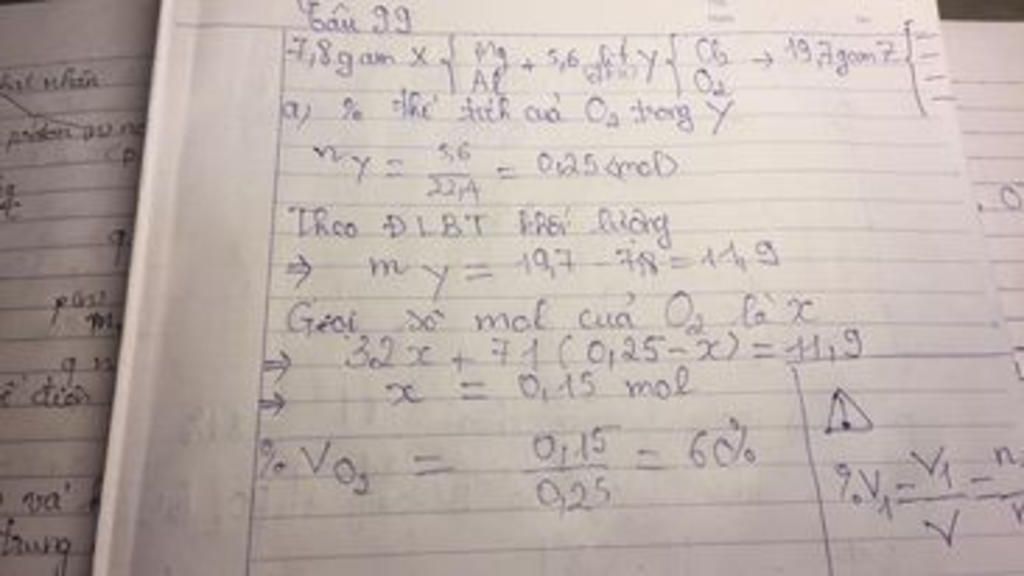 Câu 99
7,8 gam X { Mg Al + 5,6 lít Y { Cl₂ O₂ → 19,7 gam Z {
a) % thể tích cuả O₂ trong Y
n Y = 5,6 / 22,4 = 0,25 (mol)
Theo ĐLBT khối lượng
⇒ m Y = 19,7 - 7,8 = 11,9
Gọi số mol cuả O₂ là x
⇒ 32x + 71(0,25-x) = 11,9
⇒ x = 0,15 mol
% V O₂ = 0,15 / 0,25 = 60%
%V₁ = V₁ / V = n
hạt nhân
proton
và
trung